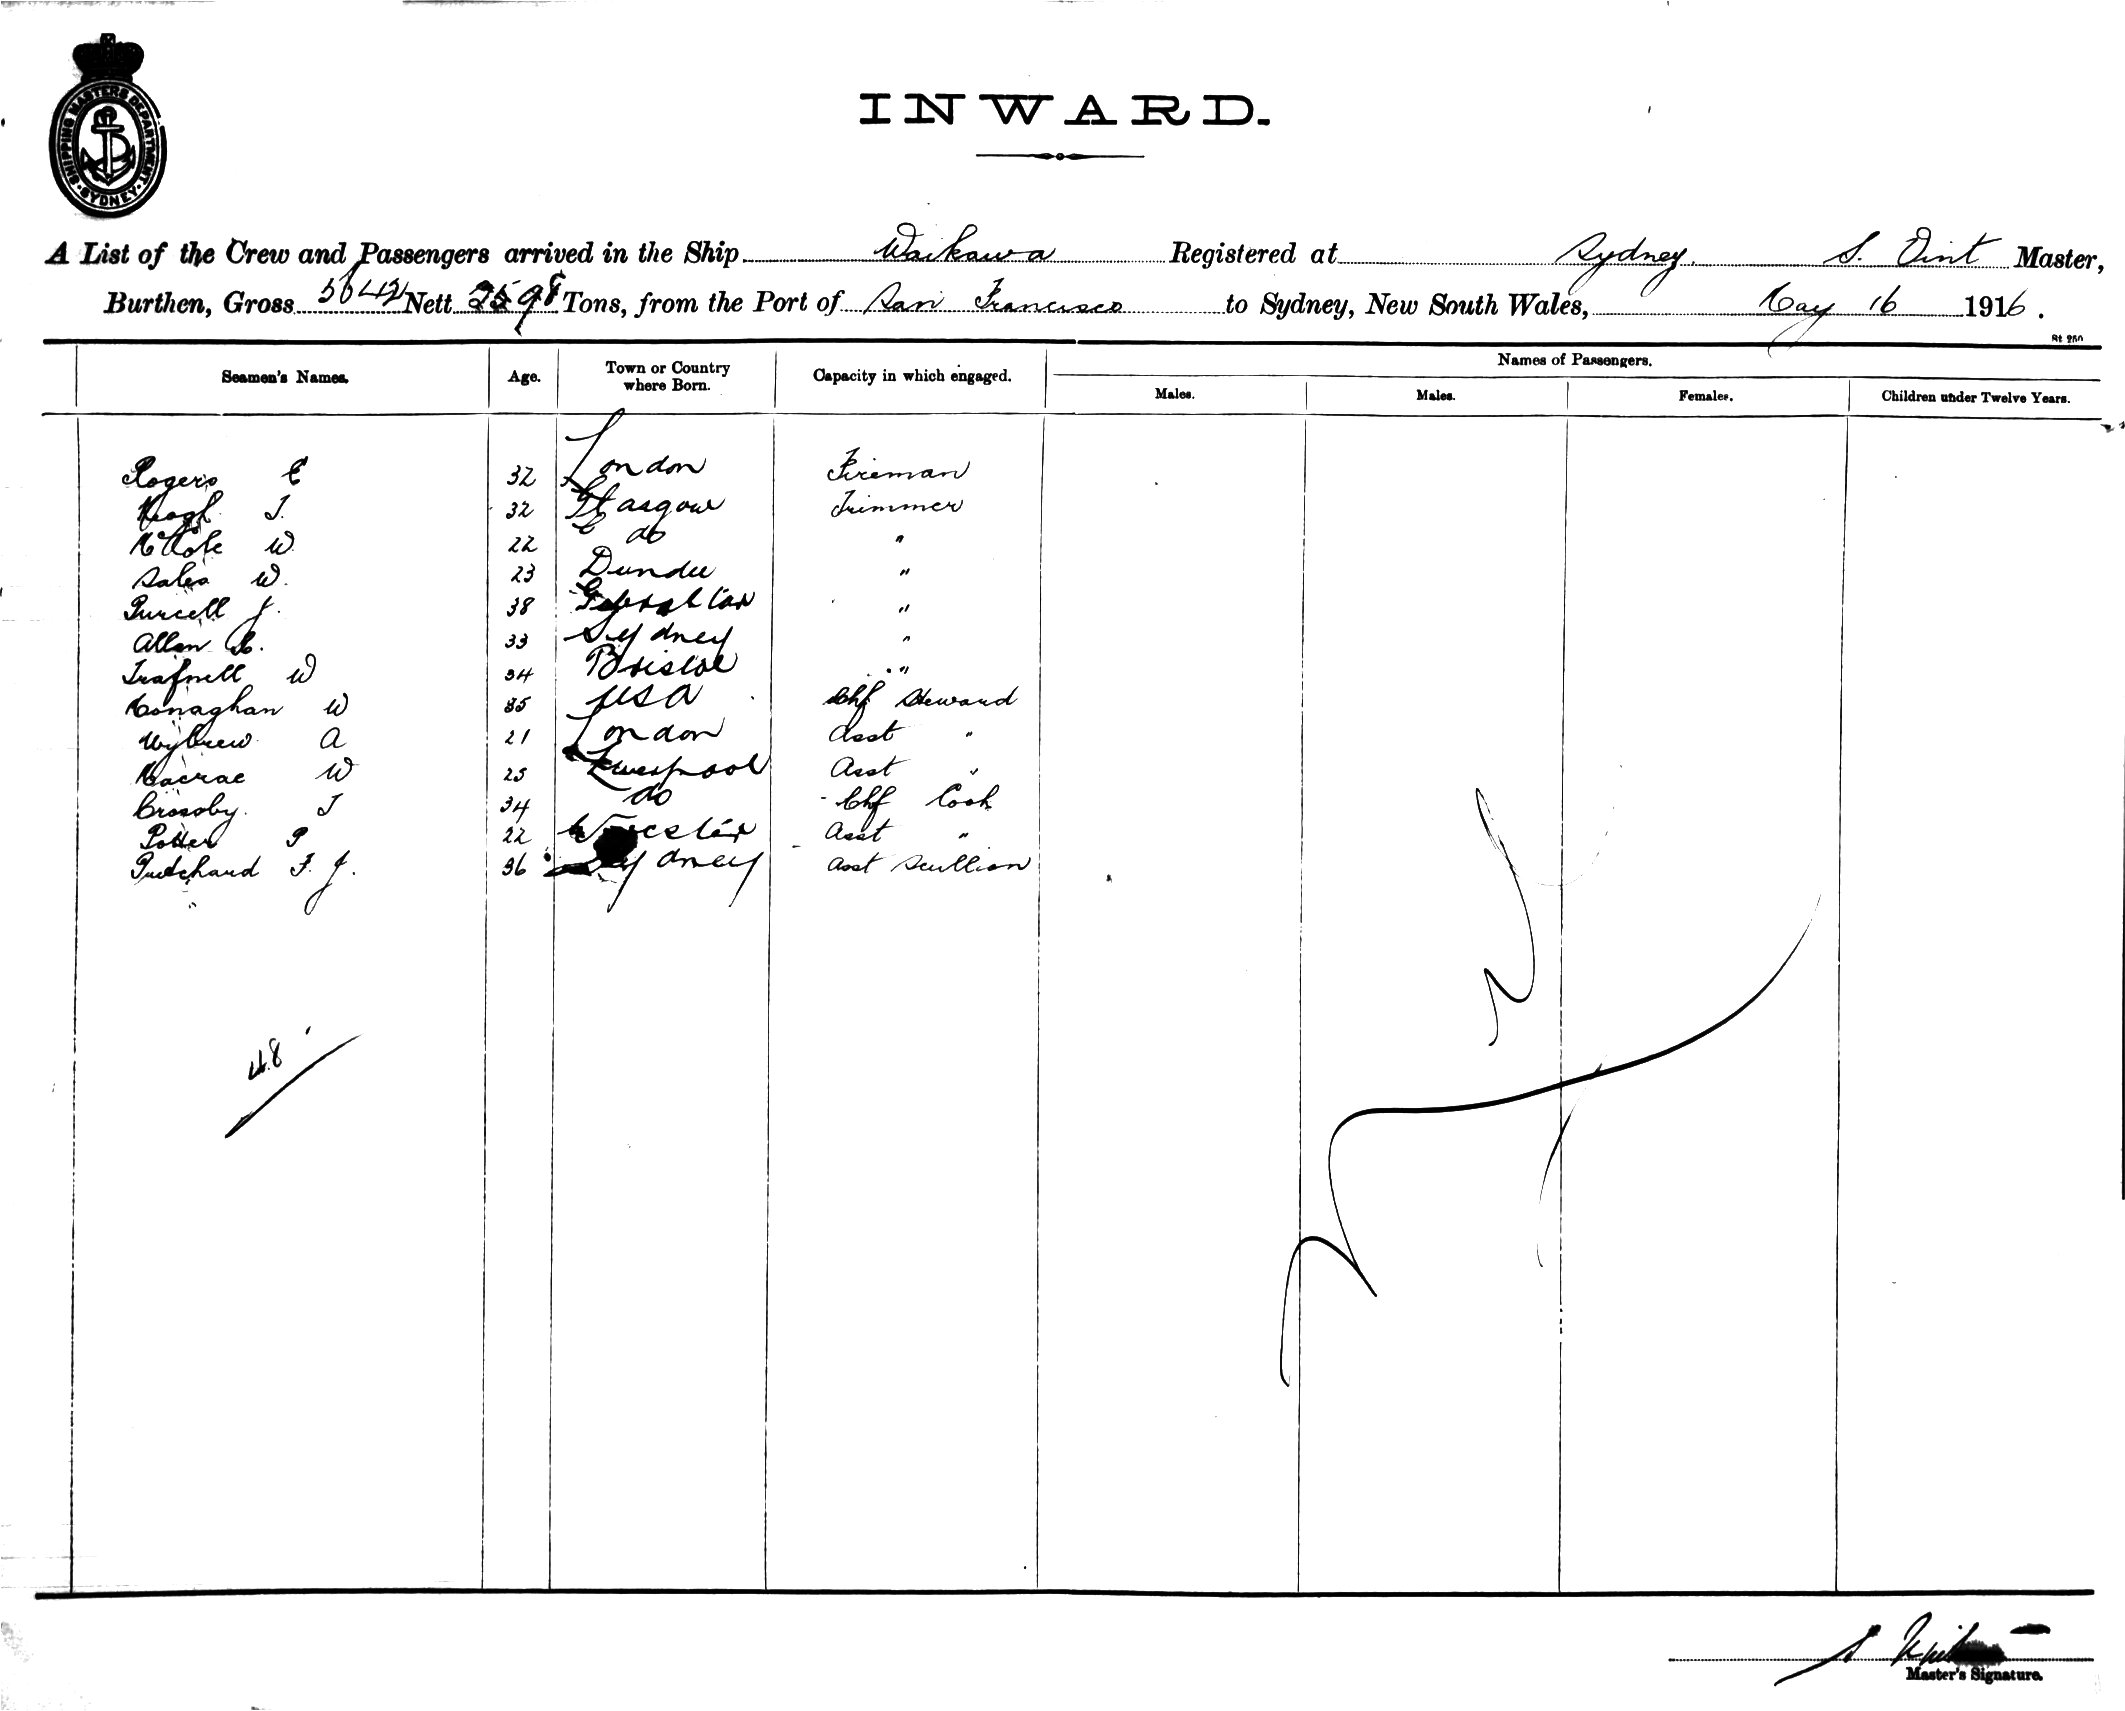 SHIPPING MASTERS DEPARTMENT · SYDNEY ·
INWARD.
A List of the Crew and Passengers arrived in the Ship Waikawa Registered at Sydney. S. Vint Master,
Burthen, Gross 5642 Nett 3598 Tons, from the Port of San Francisco to Sydney, New South Wales, May 16 1916.
St 250
Seamen's Names. Age. Town or Country where Born. Capacity in which engaged. Names of Passengers.
Males. Males. Females. Children under Twelve Years.
Rogers E 32 London Fireman
Keogh J. 32 Glasgow Trimmer
W 22 do "
Sales W. 23 Dundee "
Purcell J. 38 Gibraltar "
Allan 33 Sydney "
Trafnell W 34 Bristol "
Monaghan W 35 USA Chf Steward
Wybrew A 21 London Asst "
Macrae W 25 Liverpool Asst "
Crossby. J 34 do Chf Cook
Potter P 22 Asst "
Pritchard F. J. 36 Sydney Asst Scullion
48
S Vint
Master's Signature.